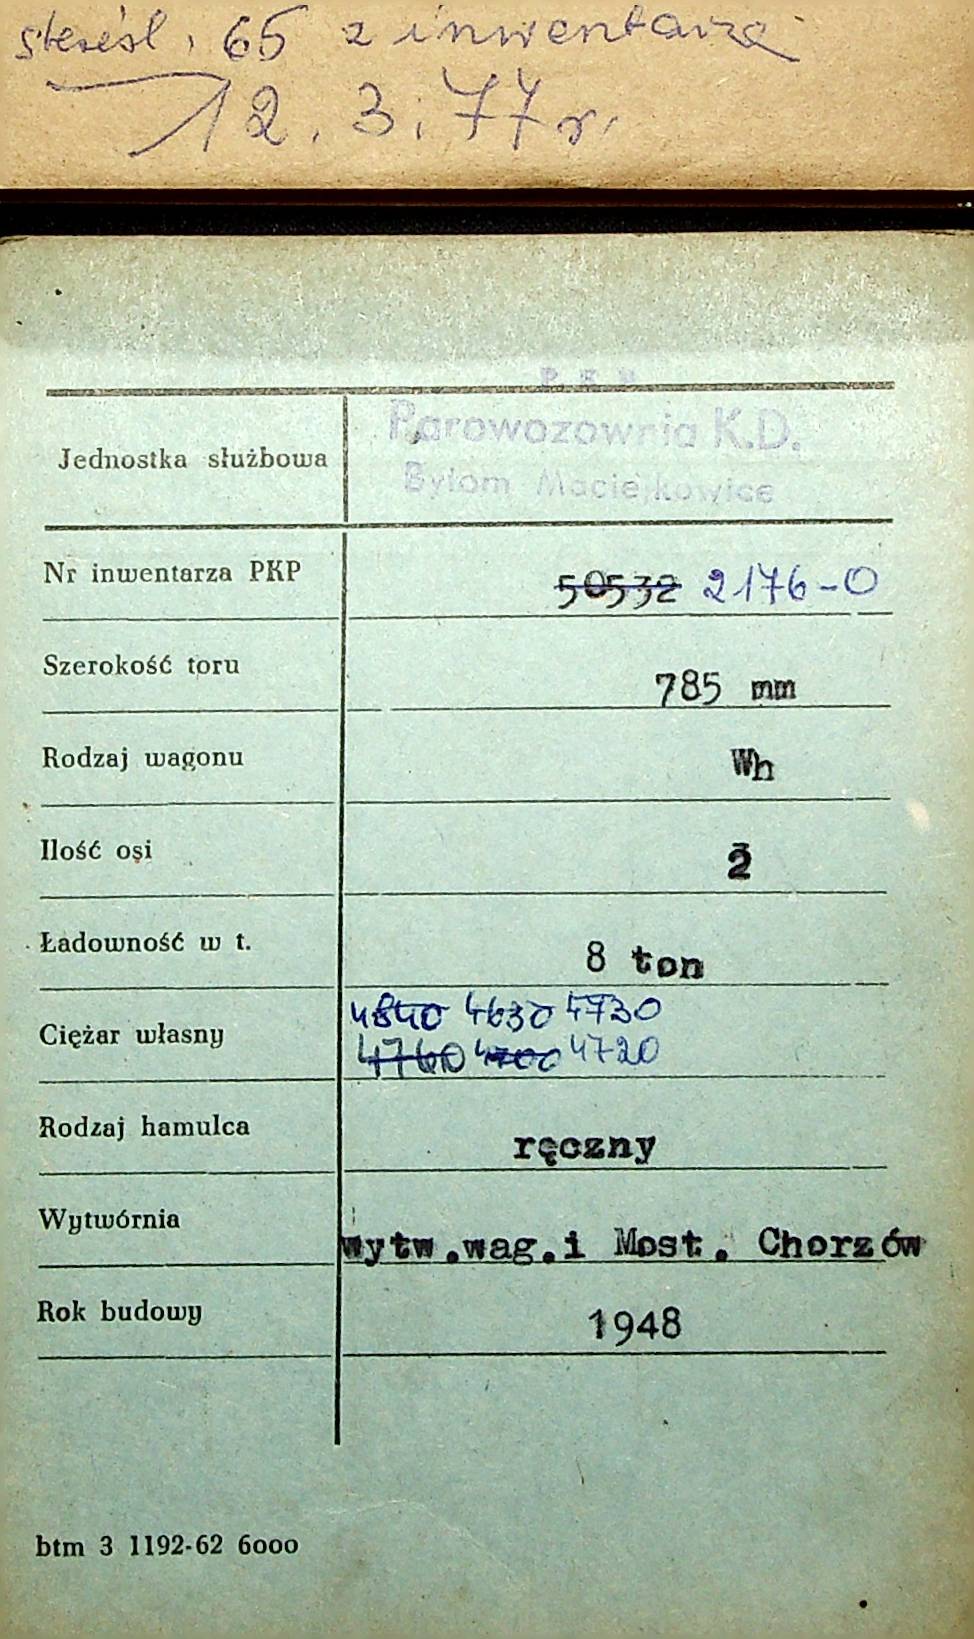 skreśl. 65 z inwentarza
12.3.77 r.
P.K.P.
Parowozownia K.D.
Bytom Maciejkowice
Jednostka służbowa
Nr inwentarza PKP 50532 2176-0
Szerokość toru 785 mm
Rodzaj wagonu Wh
Ilość osi 2
Ładowność w t. 8 ton
Ciężar własny 4840 4630 4730
4760 4700 4720
Rodzaj hamulca ręczny
Wytwórnia wytw.wag.i Most. Chorzów
Rok budowy 1948
btm 3 1192-62 6000